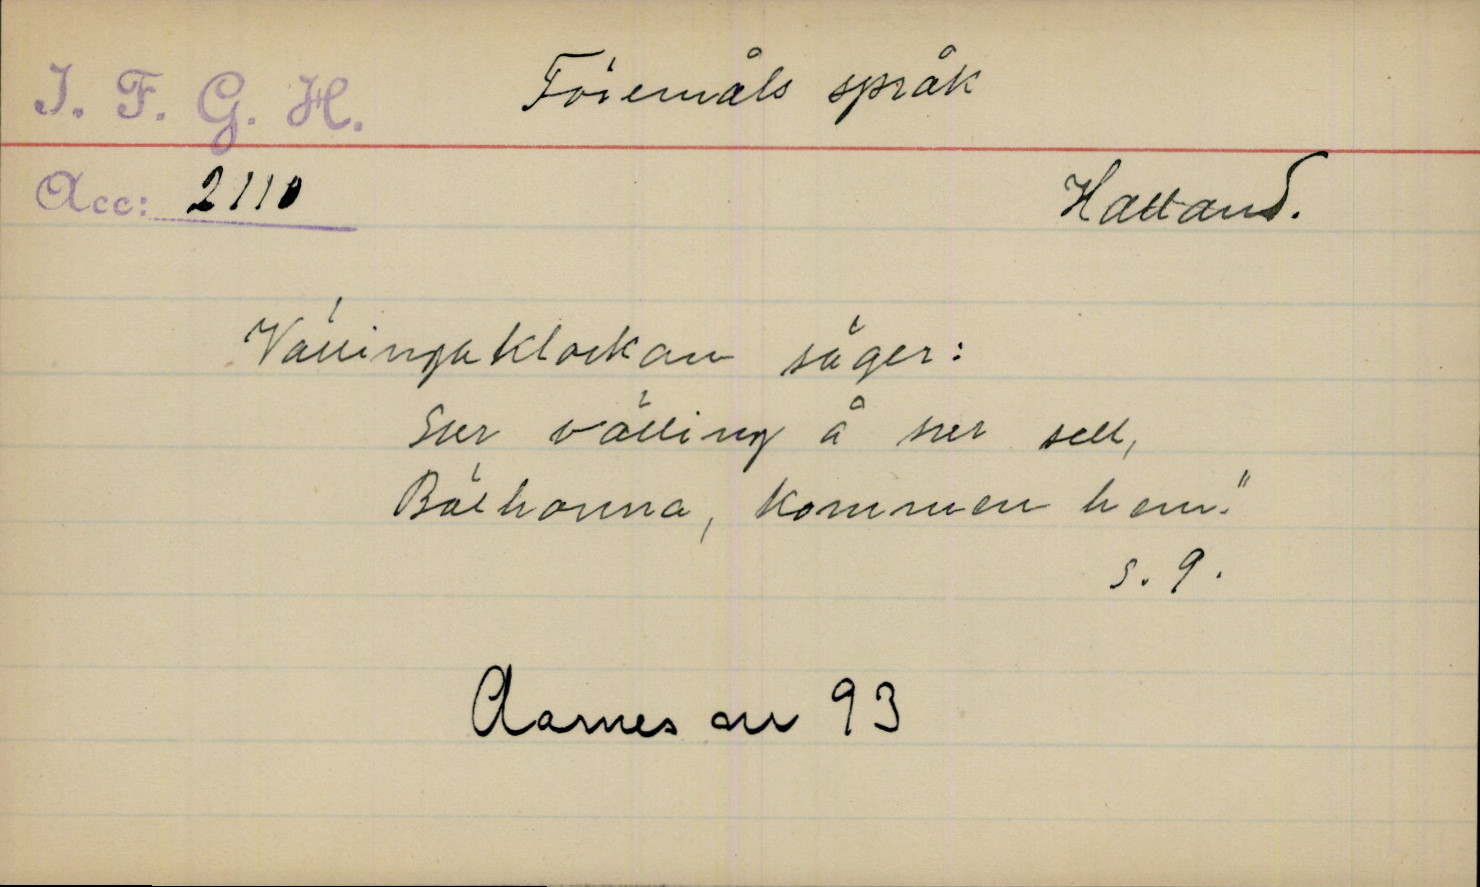 I. F. G. H.
Föremåls språk
Acc: 2110
Halland.
Vällingaklockan säger:
Sur välling å sur sell,
Bölhonna, kommen hem."
s. 9.
Aarnes nr 93